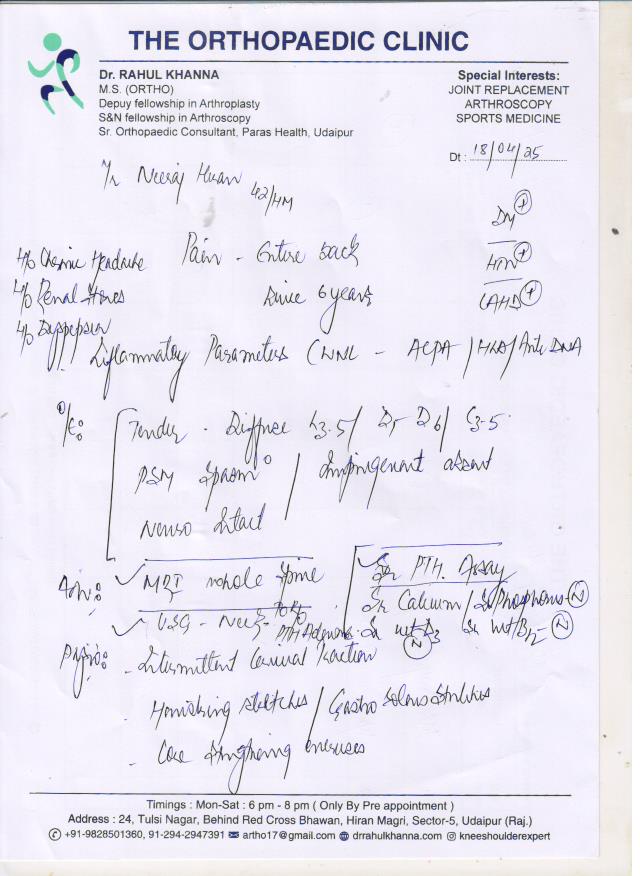 THE ORTHOPAEDIC CLINIC
Dr. RAHUL KHANNA
M.S. (ORTHO)
Depuy fellowship in Arthroplasty
S&N fellowship in Arthroscopy
Sr. Orthopaedic Consultant, Paras Health, Udaipur
Special Interests:
JOINT REPLACEMENT
ARTHROSCOPY
SPORTS MEDICINE
Dt : 18/04/25
Mr Neeraj 42/M
DM +
HTN +
H/O Chronic Headache
Pain - Entire back
H/O Renal Stones
Since 6 years
H/O Dyspepsia
Inflammatory Parameters (WNL - ACPA / HLA / Anti DNA
O/E:
Tender - Diffuse L3-5 / D5 D6 / C3-5
PSM Spasm / Impingement absent
Neuro Intact
Adv: ✓ MRI whole Spine
✓ Sr PTH Assay
Sr Calcium / Sr Phosphorus - N
✓ USG - Neck - PTH Adenoma
Sr vit D3 N
Sr vit B12 - N
Physio: - Intermittent Cervical traction
- Hamstring stretches / Gastro Soleus Stretches
- Core strengthening exercises
Timings : Mon-Sat : 6 pm - 8 pm ( Only By Pre appointment )
Address : 24, Tulsi Nagar, Behind Red Cross Bhawan, Hiran Magri, Sector-5, Udaipur (Raj.)
+91-9828501360, 91-294-2947391 artho17@gmail.com drrahulkhanna.com kneeshoulderexpert